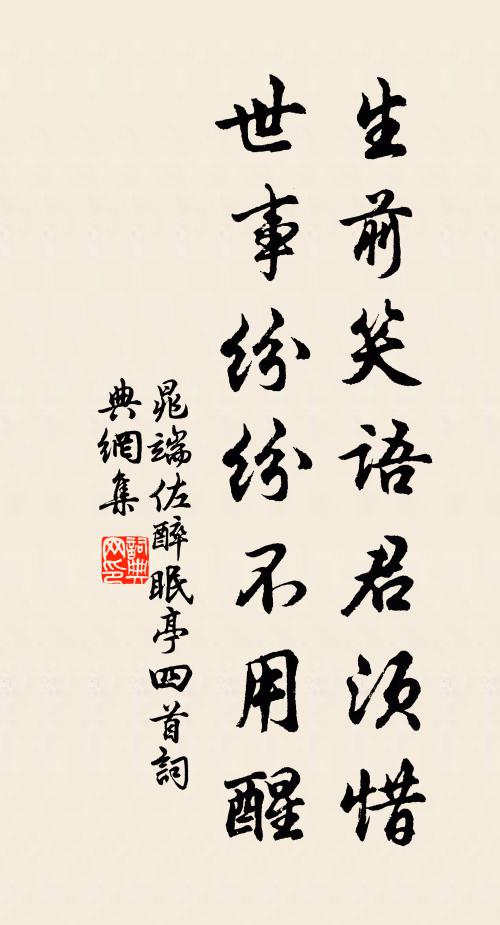 生前笑語君须惜
世事纷纷不用醒
晁端佐醉眠亭四首詞
典網集
詞典网印